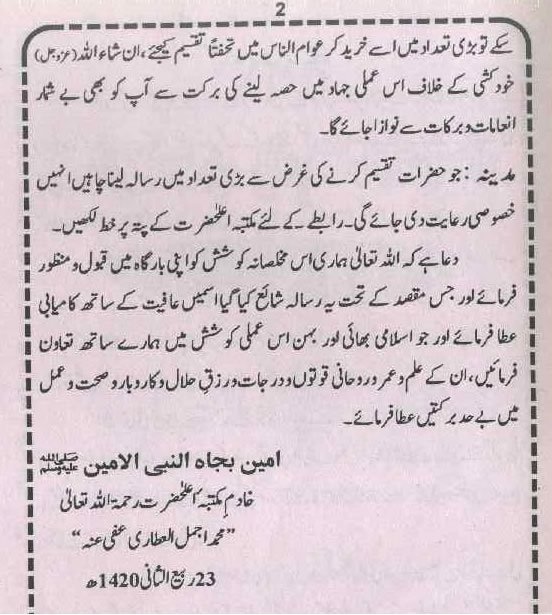 2
سکے تو بڑی تعداد میں اسے خرید کر عوام الناس میں تحفتاً تقسیم کیجئے، ان شاء اللہ (عزوجل)
خودکشی کے خلاف اس عملی جہاد میں حصہ لینے کی برکت سے آپ کو بھی بے شمار
انعامات و برکات سے نوازا جائے گا۔
مدینہ : جو حضرات تقسیم کرنے کی غرض سے بڑی تعداد میں رسالہ لینا چاہیں انہیں
خصوصی رعایت دی جائے گی۔ رابطے کے لئے مکتبہ اعلٰحضرت کے پتہ پر خط لکھیں۔
دعا ہے کہ اللہ تعالیٰ ہماری اس مخلصانہ کوشش کو اپنی بارگاہ میں قبول و منظور
فرمائے اور جس مقصد کے تحت یہ رسالہ شائع کیا گیا اسمیں عافیت کے ساتھ کامیابی
عطا فرمائے اور جو اسلامی بھائی اور بہن اس عملی کوشش میں ہمارے ساتھ تعاون
فرمائیں، ان کے علم و عمر و روحانی قوتوں و درجات و رزق حلال و کاروبار و صحت و عمل
میں بے حد برکتیں عطا فرمائے۔
امین بجاہ النبی الامین ﷺ
خادم مکتبہ اعلٰحضرت رحمۃ اللہ تعالیٰ
"محمد اجمل العطاری عفی عنہ"
23 ربیع الثانی 1420ھ